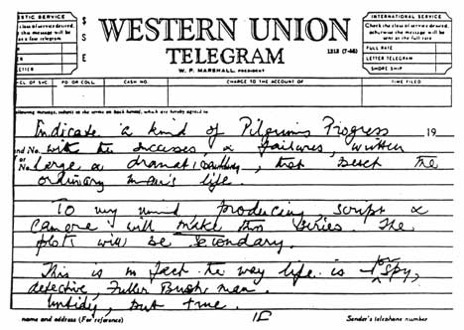 ESTIC SERVICE
class of service desired;
this message will be
as a fast telegram
LETTER
$
S
E
WESTERN UNION
TELEGRAM
W. P. MARSHALL, PRESIDENT
1218 (7-48)
INTERNATIONAL SERVICE
Check the class of service desired;
otherwise the message will be
sent at the full rate
FULL RATE
LETTER TELEGRAM
SHORE SHIP
CL OF SVC PD OR COLL CASH NO. CHARGE TO THE ACCOUNT OF TIME FILED
Indicate a kind of Pilgrims Progress 19
with the successes, & failures, written
large & dramatically, that beset the
ordinary man's life.
To my mind producing, script &
camera will make this series. The
plots will be secondary.
This is in fact the way life is for Spy,
detective, Fuller Brush man.
Untidy, but true.
name and address (For reference) Sender's telephone number